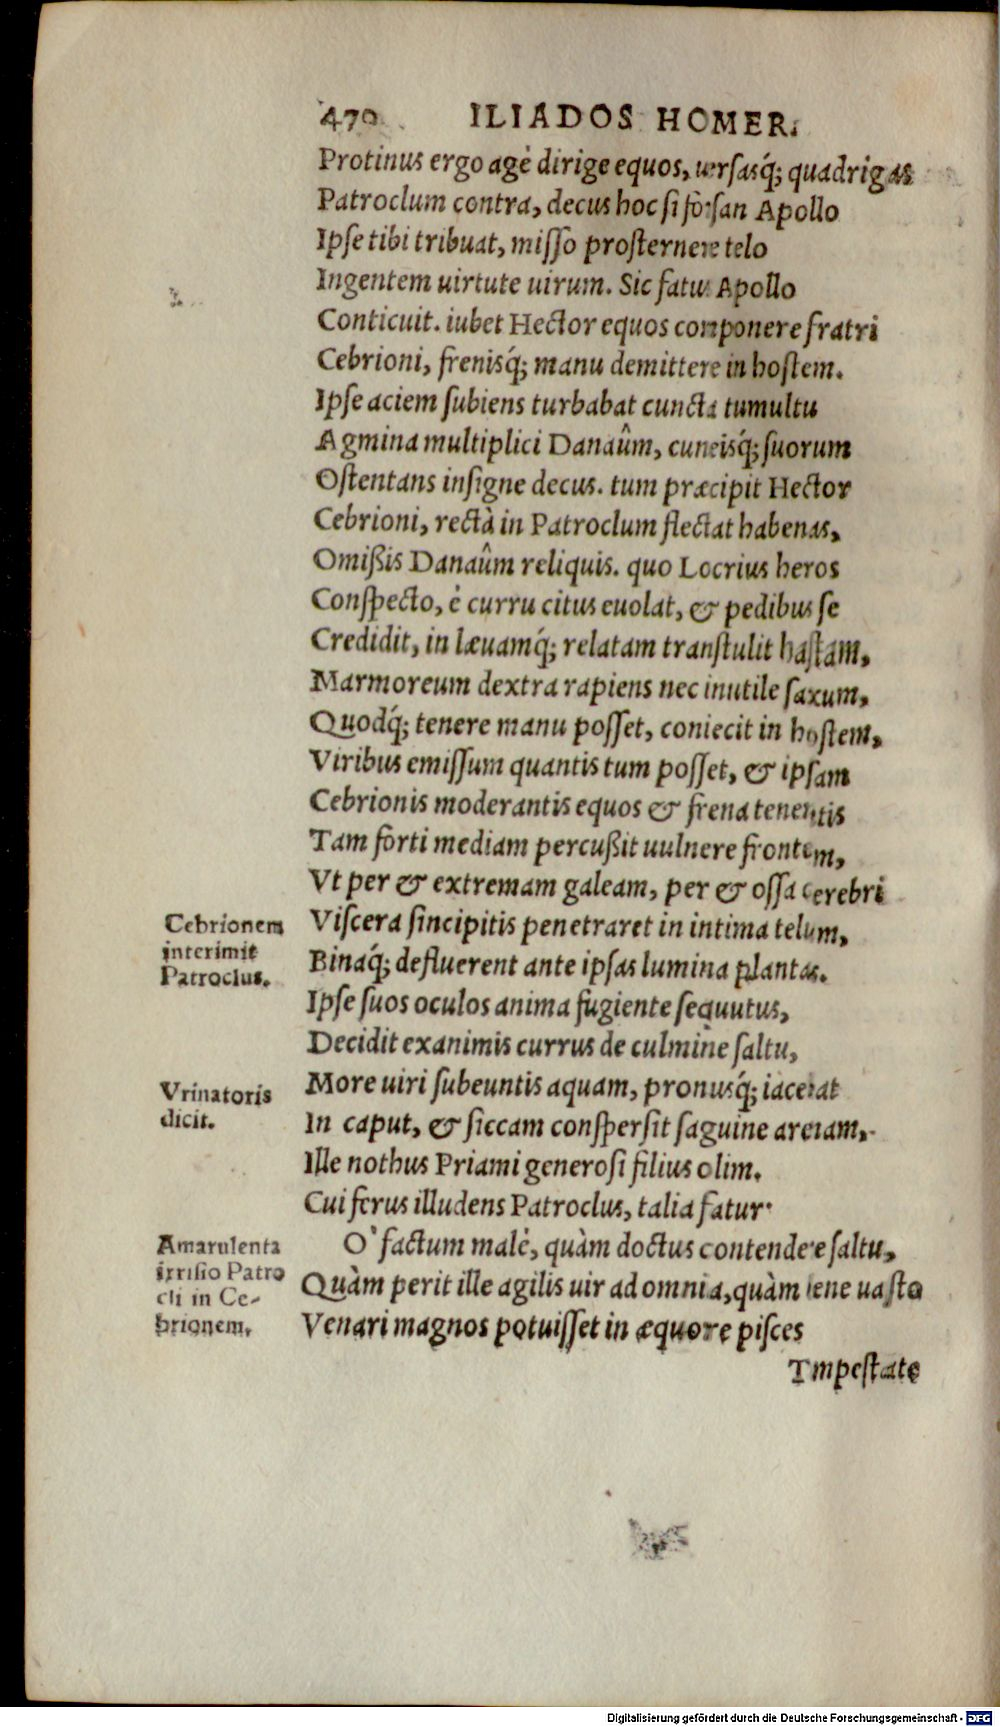 470 ILIADOS HOMER.
Protinus ergo agè dirige equos, uersasq́; quadrigas
Patroclum contra, decus hoc si forsan Apollo
Ipse tibi tribuat, misso prosternere telo
Ingentem uirtute uirum. Sic fatus Apollo
Conticuit. iubet Hector equos componere fratri
Cebrioni, frenisq́; manu demittere in hostem.
Ipse aciem subiens turbabat cuncta tumultu
Agmina multiplici Danaûm, cuneisq́; suorum
Ostentans insigne decus. tum præcipit Hector
Cebrioni, rectà in Patroclum flectat habenas,
Omißis Danaûm reliquis. quo Locrius heros
Conspecto, è curru citus euolat, & pedibus se
Credidit, in læuamq́; relatam transtulit hastam,
Marmoreum dextra rapiens nec inutile saxum,
Quodq́; tenere manu posset, coniecit in hostem,
Viribus emissum quantis tum posset, & ipsam
Cebrionis moderantis equos & frena tenentis
Tam forti mediam percußit uulnere frontem,
Vt per & extremam galeam, per & ossa cerebri
Viscera sincipitis penetraret in intima telum,
Binaq́; defluerent ante ipsas lumina plantas.
Ipse suos oculos anima fugiente sequutus,
Decidit exanimis currus de culmine saltu,
More uiri subeuntis aquam, pronusq́; iacebat
In caput, & siccam conspersit saguine arenam,
Ille nothus Priami generosi filius olim.
Cui ferus illudens Patroclus, talia fatur.
O' factum malè, quàm doctus contendere saltu,
Quàm perit ille agilis uir ad omnia, quàm bene uasto
Venari magnos potuisset in æquore pisces
Tmpestate
Cebrionem
interimit
Patroclus.
Vrinatoris
dicit.
Amarulenta
irrisio Patro
cli in Ce-
brionem.
Digitalisierung gefördert durch die Deutsche Forschungsgemeinschaft - DFG